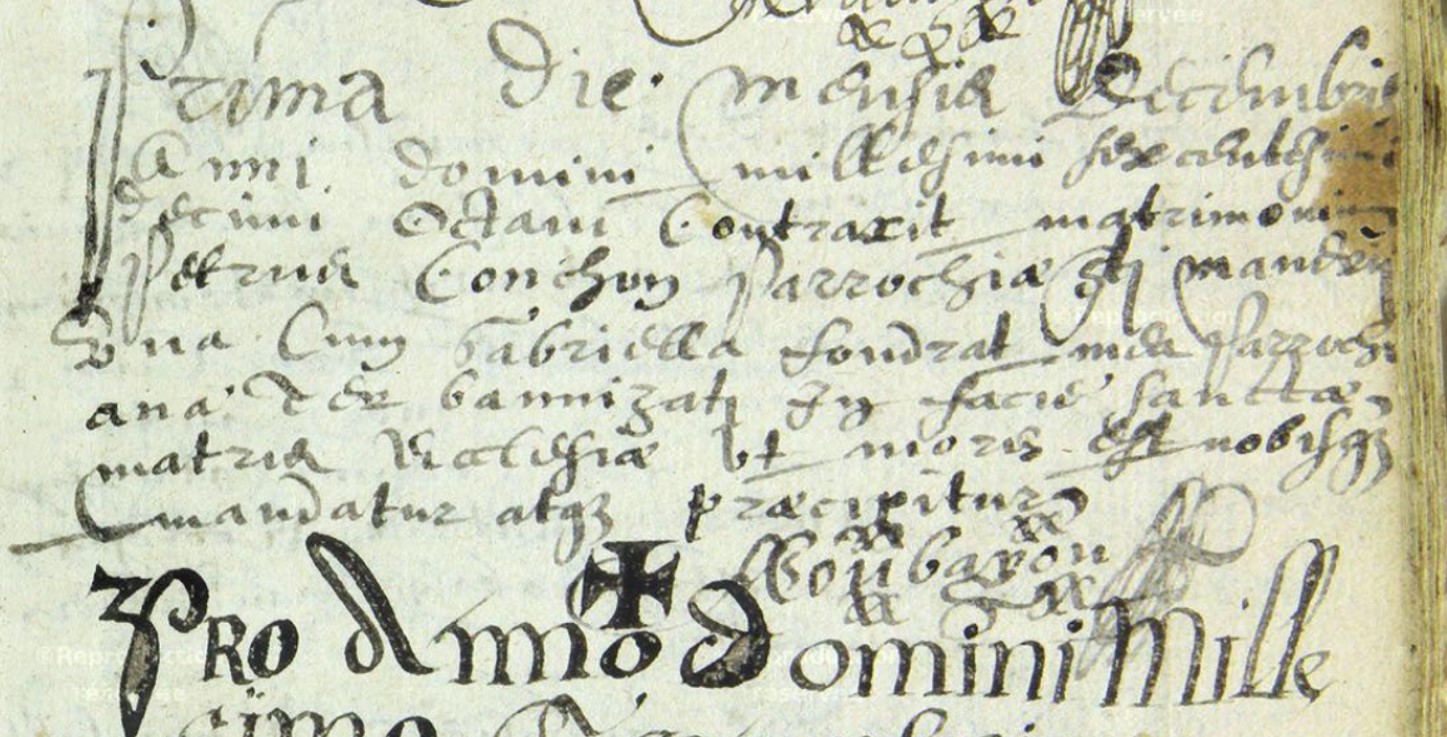 Prima Die mensis Decembris
Anni domini millesimi sexcentesimi
decimi Octavi Contraxit matrimonium
Petrus Conchon Parrochiæ Sti
Una Cum Gabriella fondrat mea Parrochi
ana Ter bannizati In facie sanctæ
matris Ecclesiæ ut moris est nobisqz
mandatur atqz præcipitur
PRO Anno Domini Mille
simo